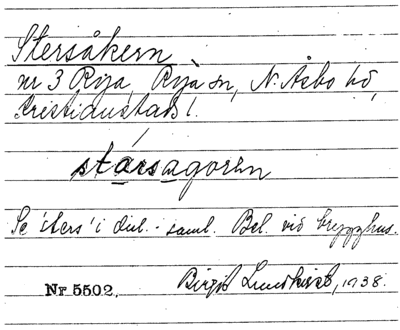 Stersåkern
nr 3 Rya, Rya sn, N. Åsbo hd,
Kristianstads l.
stársagorɘn
Se 'sters' i dial.-saml. Bel. vid brygghus.
Nr 5502. Birgit Lundkvist, 1938.